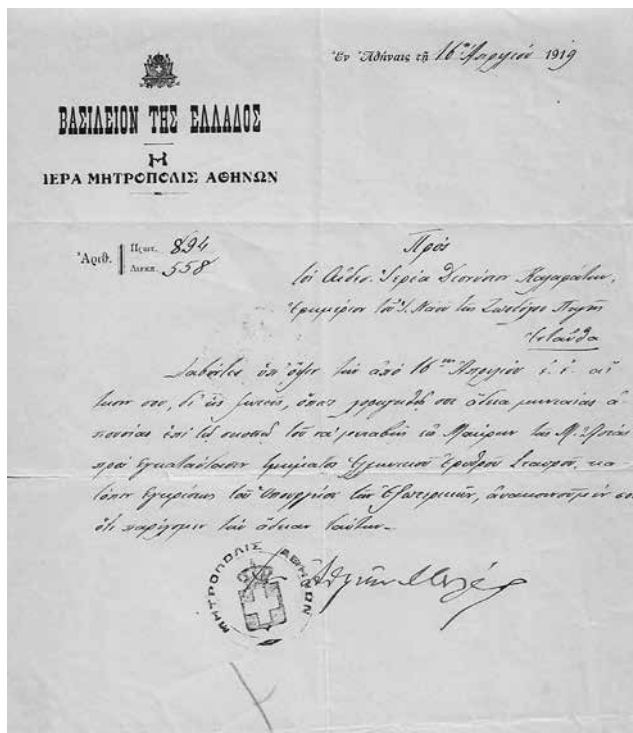 Ἐν Ἀθήναις τῇ 16ῃ Ἀπριλίου 1919
ΒΑΣΙΛΕΙΟΝ ΤΗΣ ΕΛΛΑΔΟΣ
Η
ΙΕΡΑ ΜΗΤΡΟΠΟΛΙΣ ΑΘΗΝΩΝ
Ἀριθ. Πρωτ. 894
Διεκπ. 558
Πρὸς
τὸν Αἰδεσ. Ἱερέα Διονύσιον
Ἐφημέριον τοῦ Ἱ. Ναοῦ τῆς Ζωοδόχου Πηγῆς
Ἐνταῦθα
Λαβόντες ὑπ' ὄψιν τὴν ἀπὸ 16ης Ἀπριλίου ἐ. ἔ. αἴ
τησίν σου, δι' ἧς ζητεῖς, ὅπως χορηγηθῇ σοι ἄδεια μηνιαίας ἀ
πουσίας ἐπὶ τῷ σκοπῷ τοῦ νὰ μεταβῇς εἰς τῆς Μ. Ἀσίας
πρὸς ἐγκατάστασιν τμήματος Ἑλληνικοῦ Ἐρυθροῦ Σταυροῦ, κα
τόπιν ἐγκρίσεως τοῦ Ὑπουργείου τῶν Ἐξωτερικῶν, ἀνακοινοῦμέν σοι
ὅτι παρέχομεν τὴν ἄδειαν ταύτην
ΜΗΤΡΟΠΟΛΙΣ ΑΘΗΝΩΝ